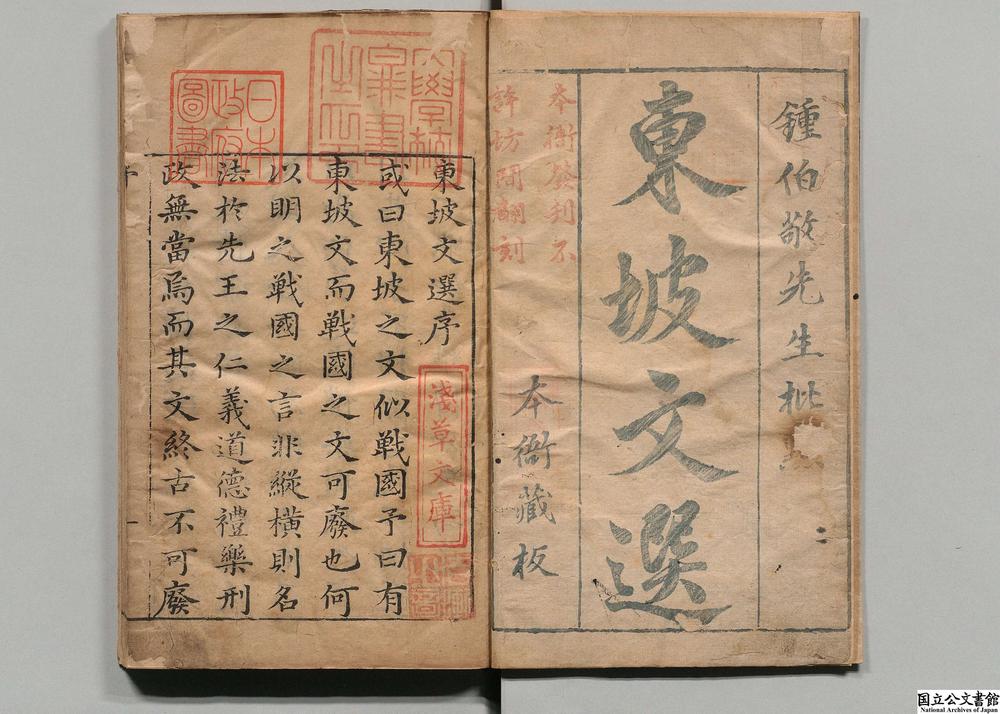 鍾伯敬先生批
東坡文選
本衙藏板
本衙發刊不
許坊間翻刻
東坡文選序
或曰東坡之文似戰國予曰有
東坡文而戰國之文可廢也何
以明之戰國之言非縱橫則名
法於先王之仁義道德禮樂刑
政無當焉而其文終古不可廢
日本
政府
圖書
淺草文庫
国立公文書館
National Archives of Japan